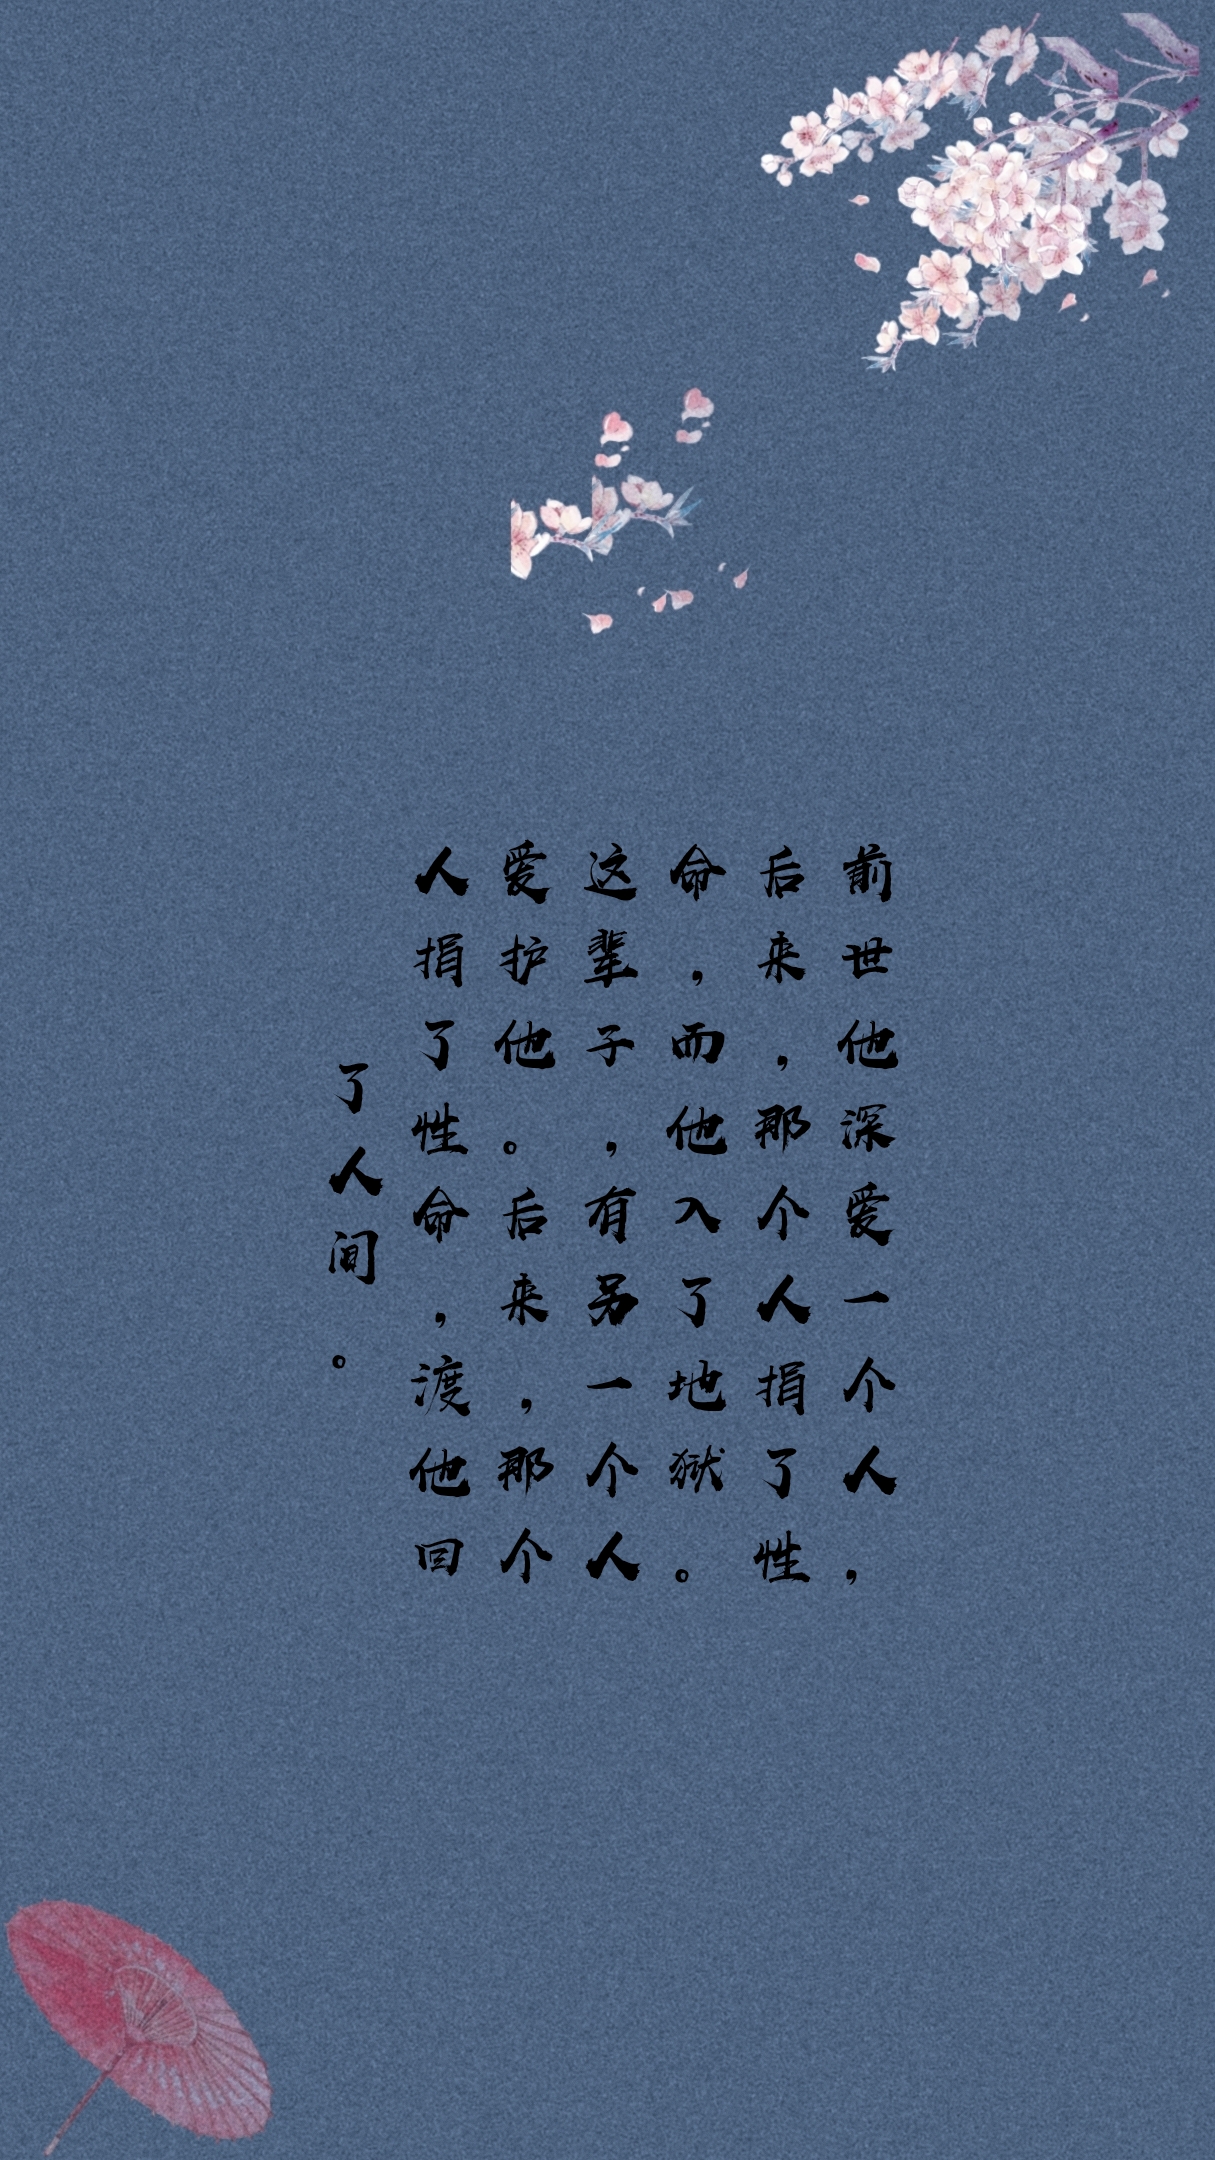 前世他深爱一个人，
后来，那个人捐了性
命，而他入了地狱。
这辈子，有另一个人
爱护他。后来，那个
人捐了性命，渡他回
了人间。